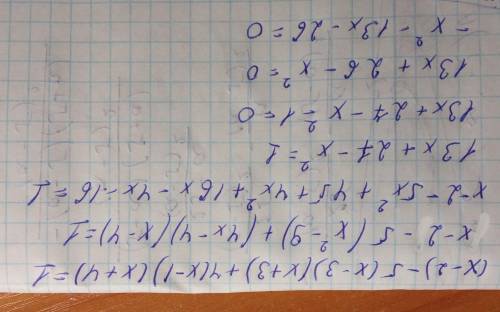 (x-2)-5(x-3)(x+3)+4(x-1)(x+4)=1
x-2-5(x²-9)+(4x-4)(x-4)=1
x-2-5x²+45+4x²+16x-4x-16=1
13x+27-x²=1
13x+27-x²-1=0
13x+26-x²=0
-x²-13x-26=0